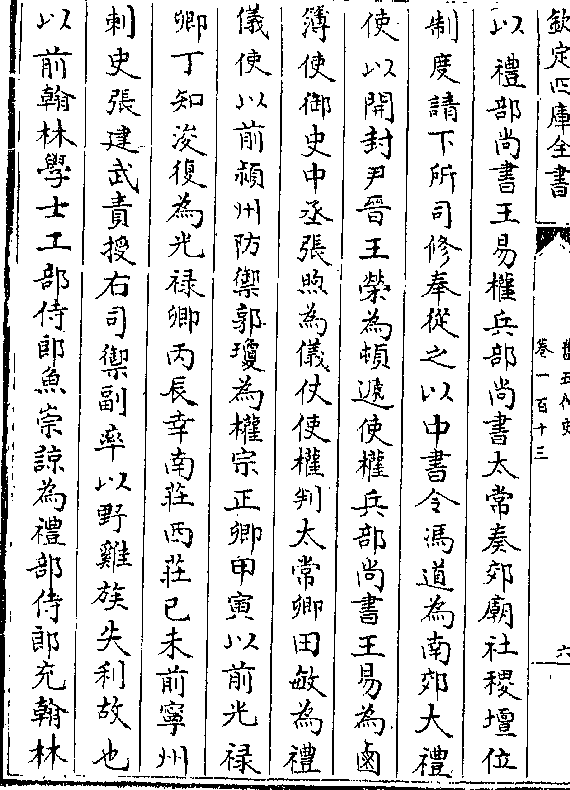 欽定四庫全書
舊五代史
卷一百十三
六
以禮部尚書王易權兵部尚書太常奏郊廟社稷壇位
制度請下所司修奉從之以中書令馮道為南郊大禮
使以開封尹晉王榮為頓遞使權兵部尚書王易為鹵
簿使御史中丞張煦為儀仗使權判太常卿田敏為禮
儀使以前潁州防禦郭瓊為權宗正卿甲寅以前光禄
卿丁知浚復為光禄卿丙辰幸南莊西莊己未前寧州
刺史張建武責授右司禦副率以野雞族失利故也
以前翰林學士工部侍郎魚崇諒為禮部侍郎充翰林